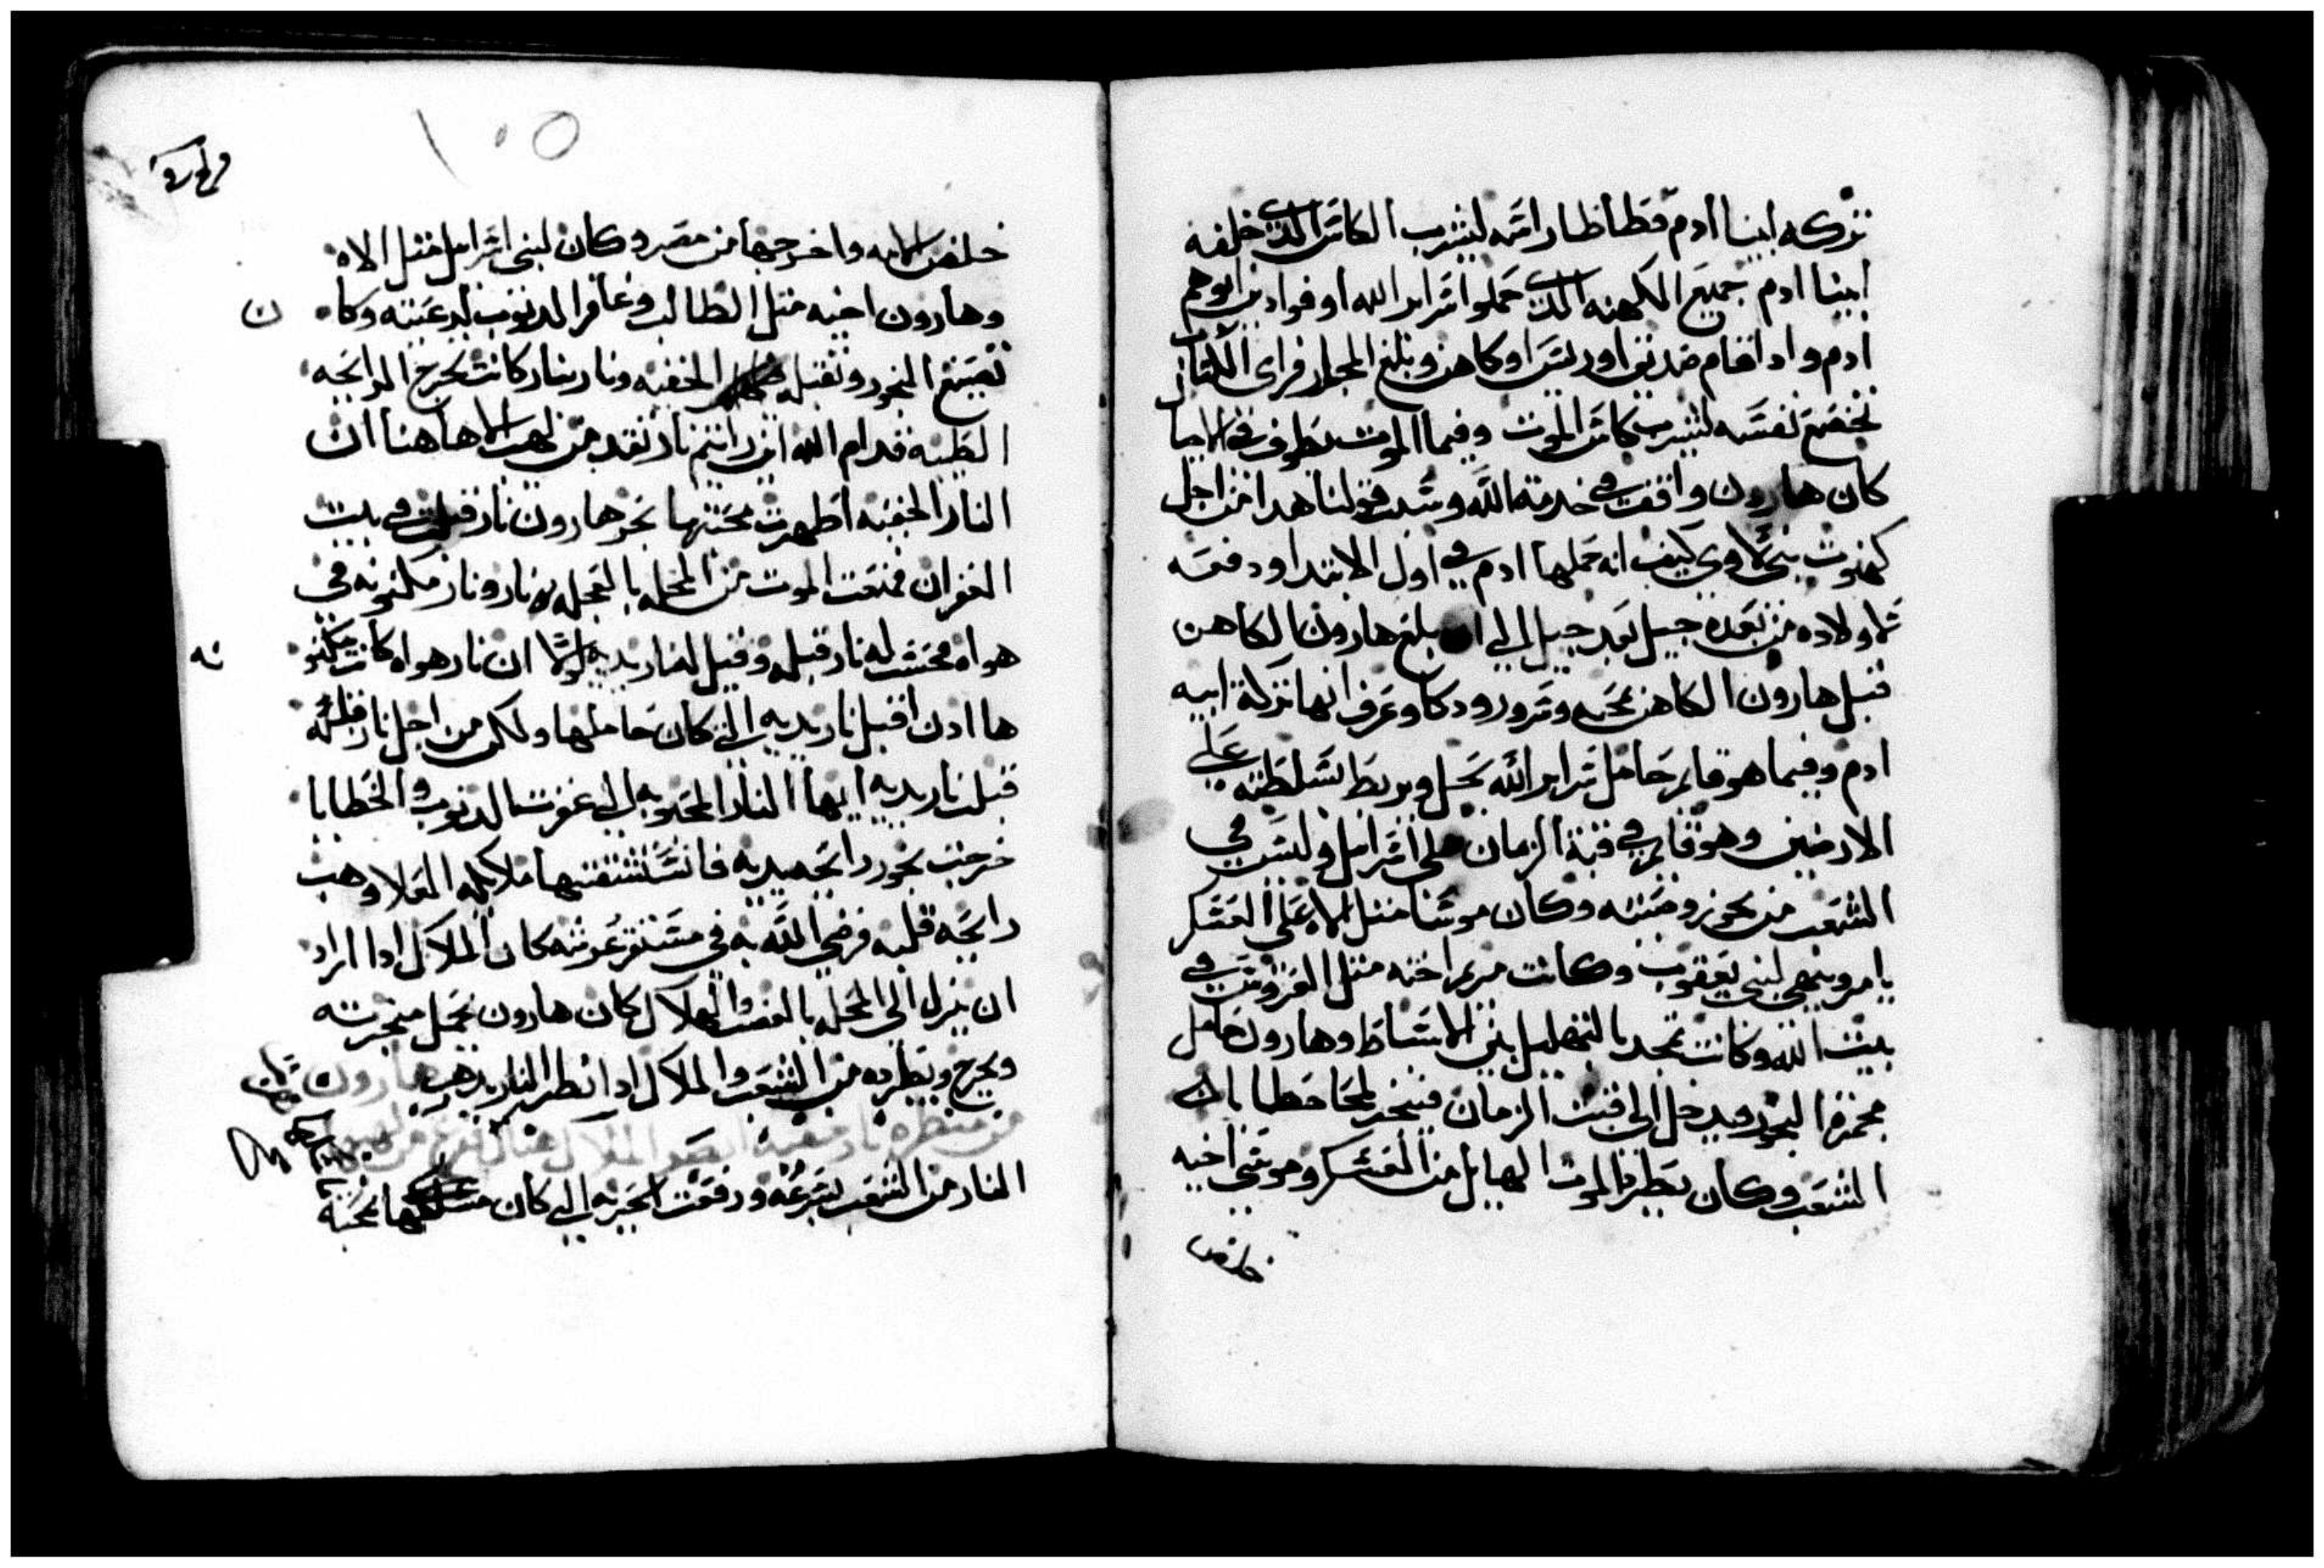 تركه ابينا ادم فطاطا راسه ليشرب الكاس الذي خلفه
ابينا ادم جميع الكهنه الذي حملوا سراير الله اوفوا دين ابوهم
ادم واذا قام صديق او رييس او كاهن وبلغ المجلد فراى الكتاب
تخضع نفسه ليشرب كاس الموت وفيما الموت يطوف في الاحيا
كان هارون واقف في خدمة الله وسبب قولنا هدا من اجل
كهنوت بني لاوي كيف انه حملها ادم في اول الابتدا ودفعه
ثم اولاده من بعده جيل بعد جيل الي ان بلغ هارون الكاهن
قبل هارون الكاهن بمحبه وسرور ودكا وعرف انها تركة ابيه
ادم وفيما هو قايم حامل سراير الله يحل ويربط بسلطته علي
الارضين وهو قايم في قبة الزمان علي اسراييل وليس في
الشعب من يجوز وصيته وكان موسا مثل الاه علي العسكر
يامر وينهي لبني يعقوب وكانت مريم اخته مثل العروس في
بيت الله وكانت تمجد بالتهليل بين الاسباط وهارون حامل
مجمرة البخور ويدخل الى قبت الزمان فيبخر لمحا خطايا
الشعب وكان يطرد الموت الهايل من العسكر وموسي اخيه
خلص
١٠٥
خلص الامه واخرجها من مصر وكان لبني اسراييل مثل الاه
وهارون اخيه مثل الطالب وغافر الدنوب لرعيته وكا ن
تصنع البخور وتقبله الخفيه ونار بنار كانت تخرج الرايحه
الطيبه قدام الله اين رايتم نار تقد من لهب الا هاهنا ان
النار الخفيه اظهرت محبتها نحو هارون نار قبلت في بيت
الغفران فمنعت الموت من المحله بالعجله نار ونار مكنونه في
هواه محبت له نار قبله وقيل لنار يديه لولا ان نار هواه كانت مكنو نه
ها ادن اقبل نار يديه الذي كان حاملها ولكن من اجل نار قلبه
قبلت نار يديه ايها النار المحبوبه الي غفرت الدنوب والخطايا
خرجت بخور رايحه يديه فانستنشقتها ملايكه العلا وهبت
رايحة قلبه فرضي الله به في مستقر عرشه كان الملاك ادا اراد
ان ينزل الى المحله بالغضب والهلاك كان هارون يحمل مجمرته
ويخرج ويطرده من الشعب والملاك ادا نظر النار يهرب هارون
النار من الشعب بسرعه ورفعت الحربه الي كان مسكها بمحبة